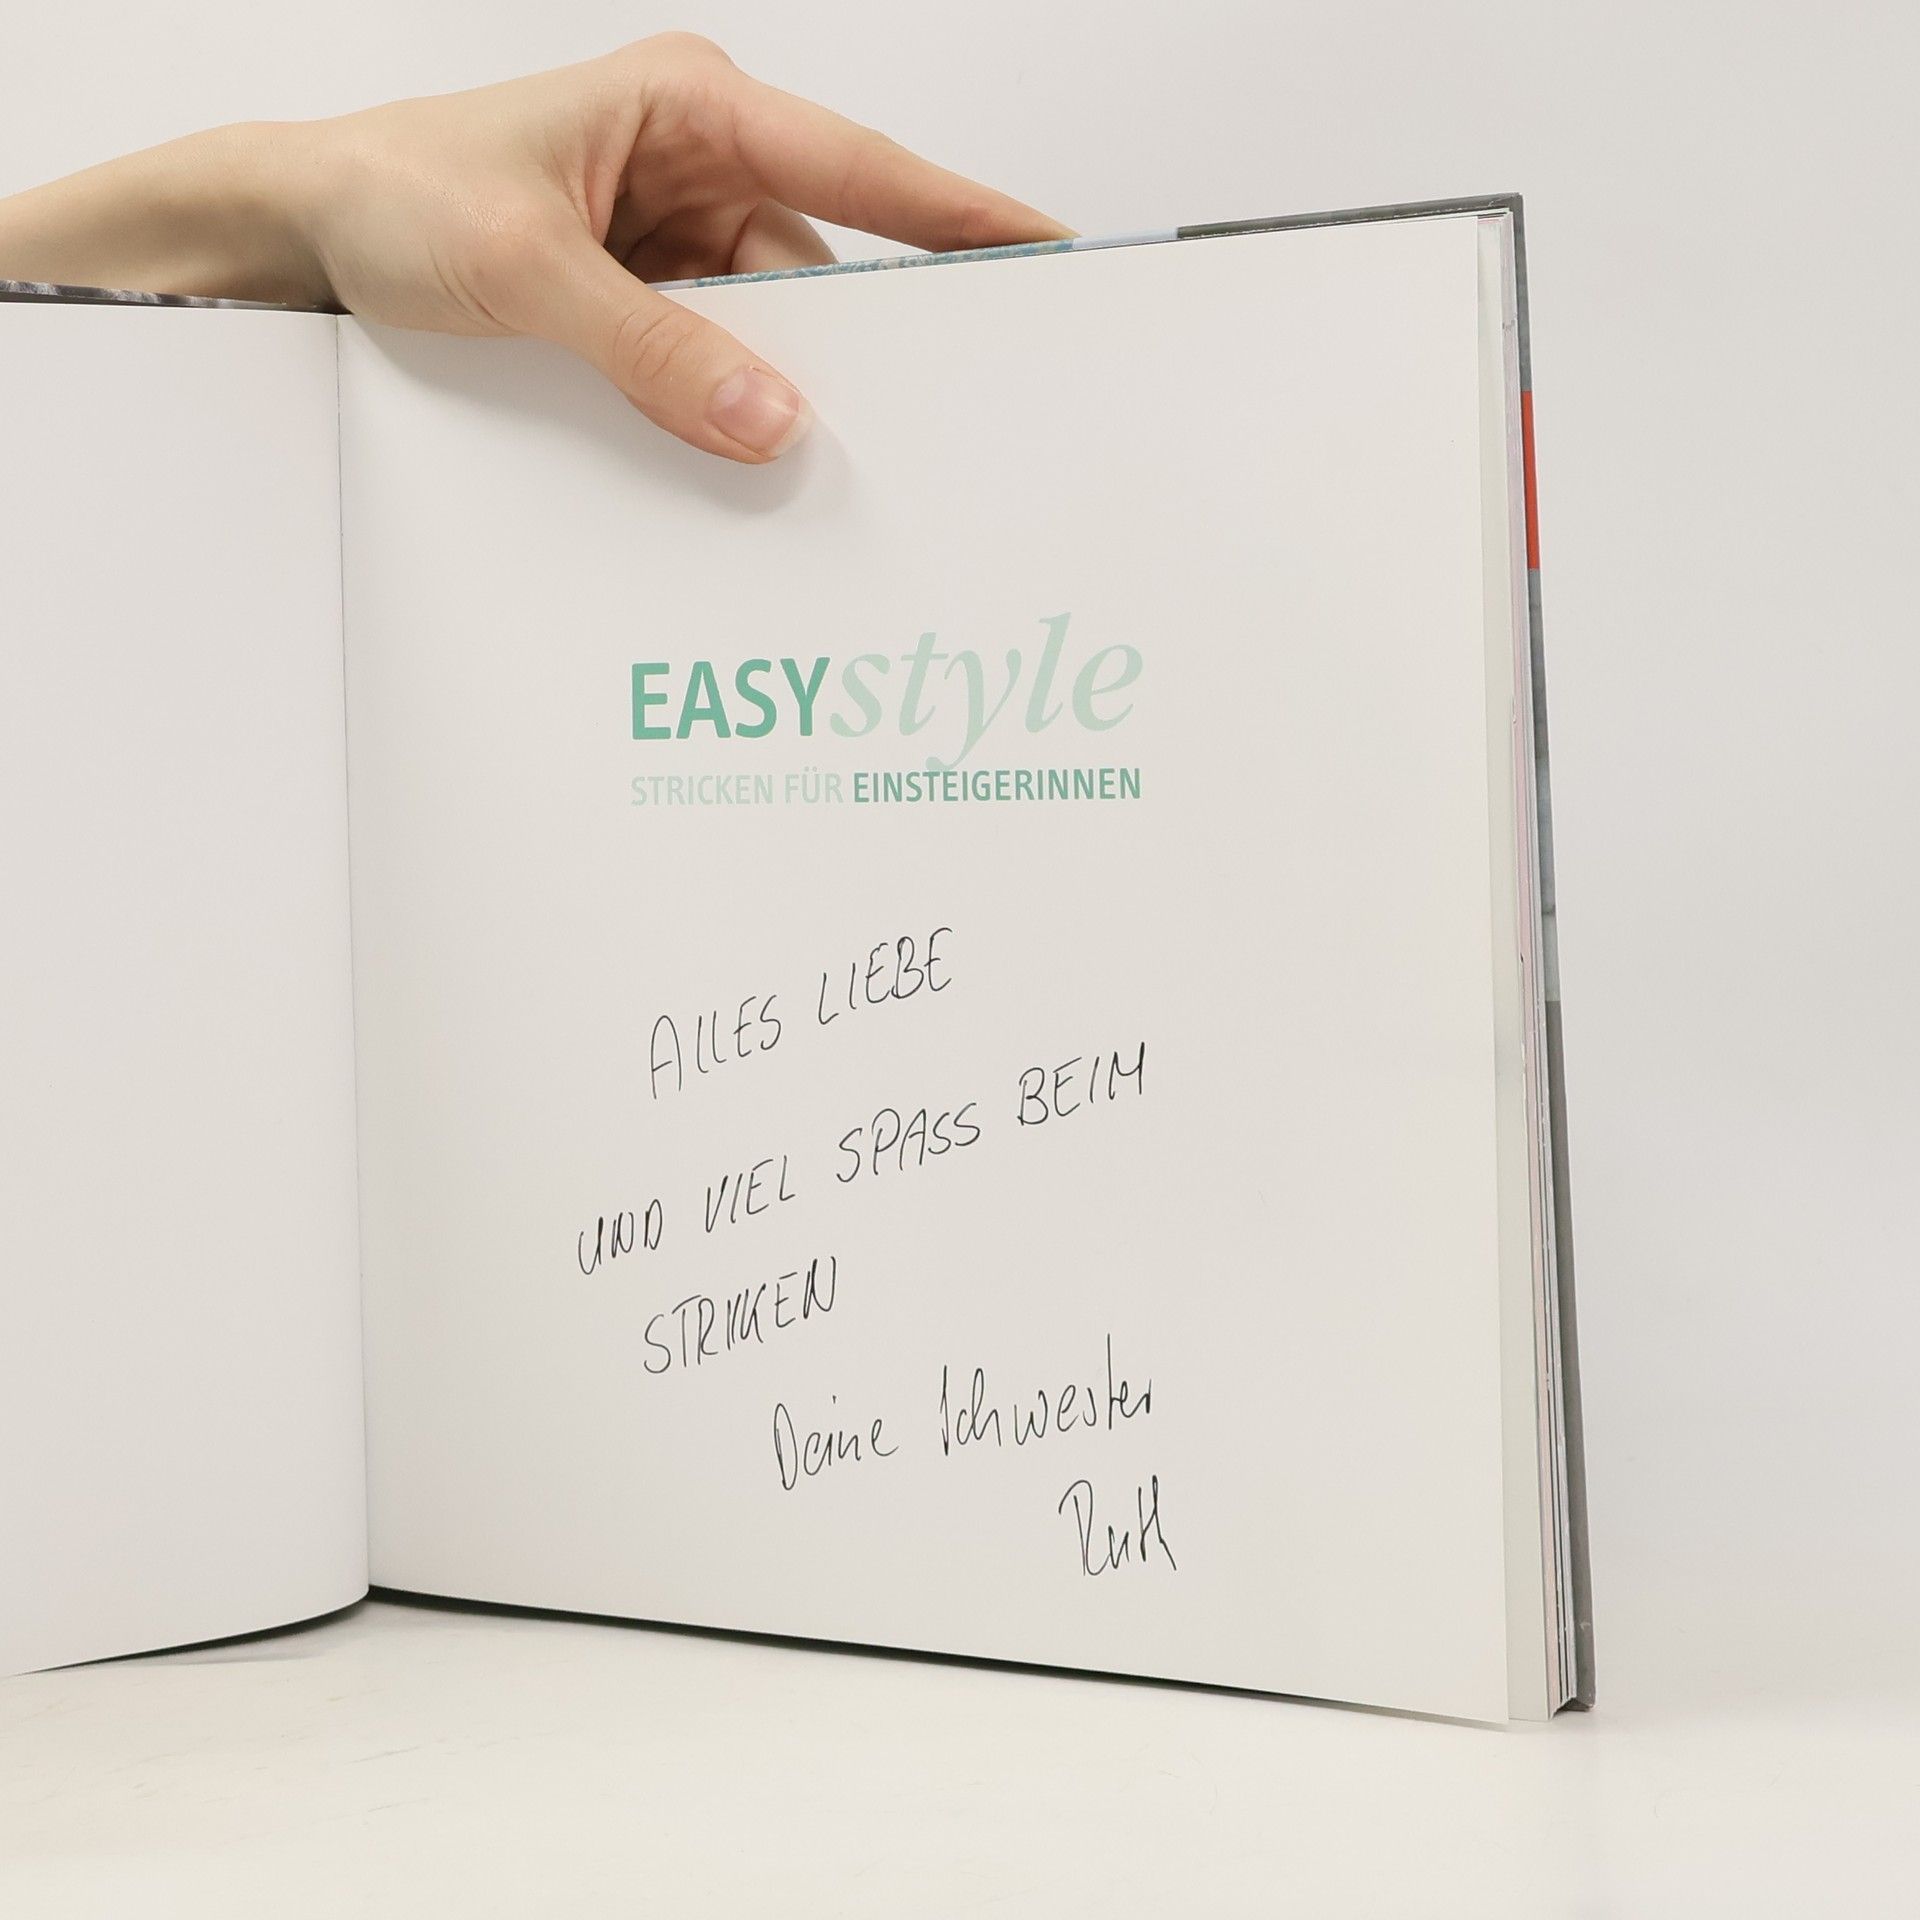 EASYstyle
STRICKEN FÜR EINSTEIGERINNEN
ALLES LIEBE
UND VIEL SPASS BEIM
STRIKKEN
Deine Schwester
Ruth